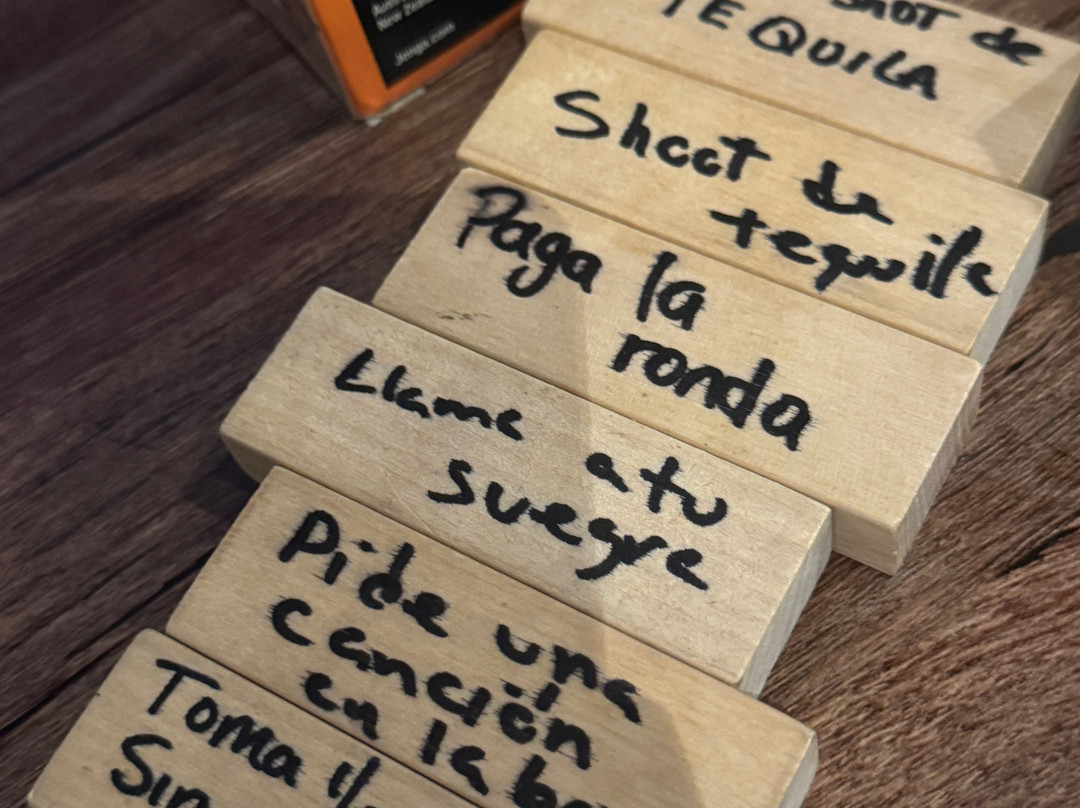 New Zea
Jenga.com
SHOT de
TEQUILA
Shoot de
tequila
Paga la
ronda
Llama a tu
suegra
Pide una
canción
en la
Toma
Sin